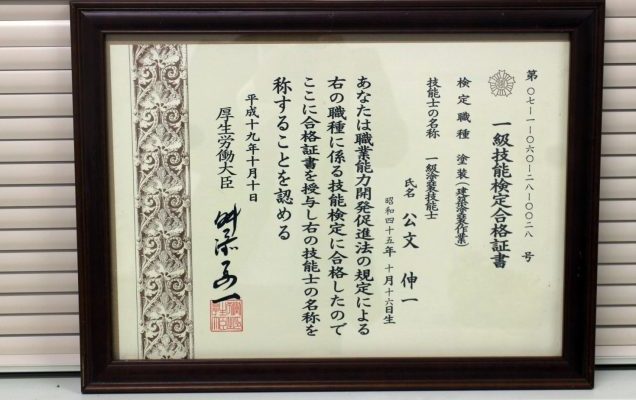 第 〇七-一-〇六〇-二八-〇〇二八 号
一級技能検定合格証書
検定職種 塗装(建築塗装作業)
技能士の名称 一級塗装技能士
氏名 公文 伸一
昭和四十五年 十月十六日生
あなたは職業能力開発促進法の規定による
右の職種に係る技能検定に合格したので
ここに合格証書を授与し右の技能士の名称を
称することを認める
平成十九年十月十日
厚生労働大臣
舛添要一